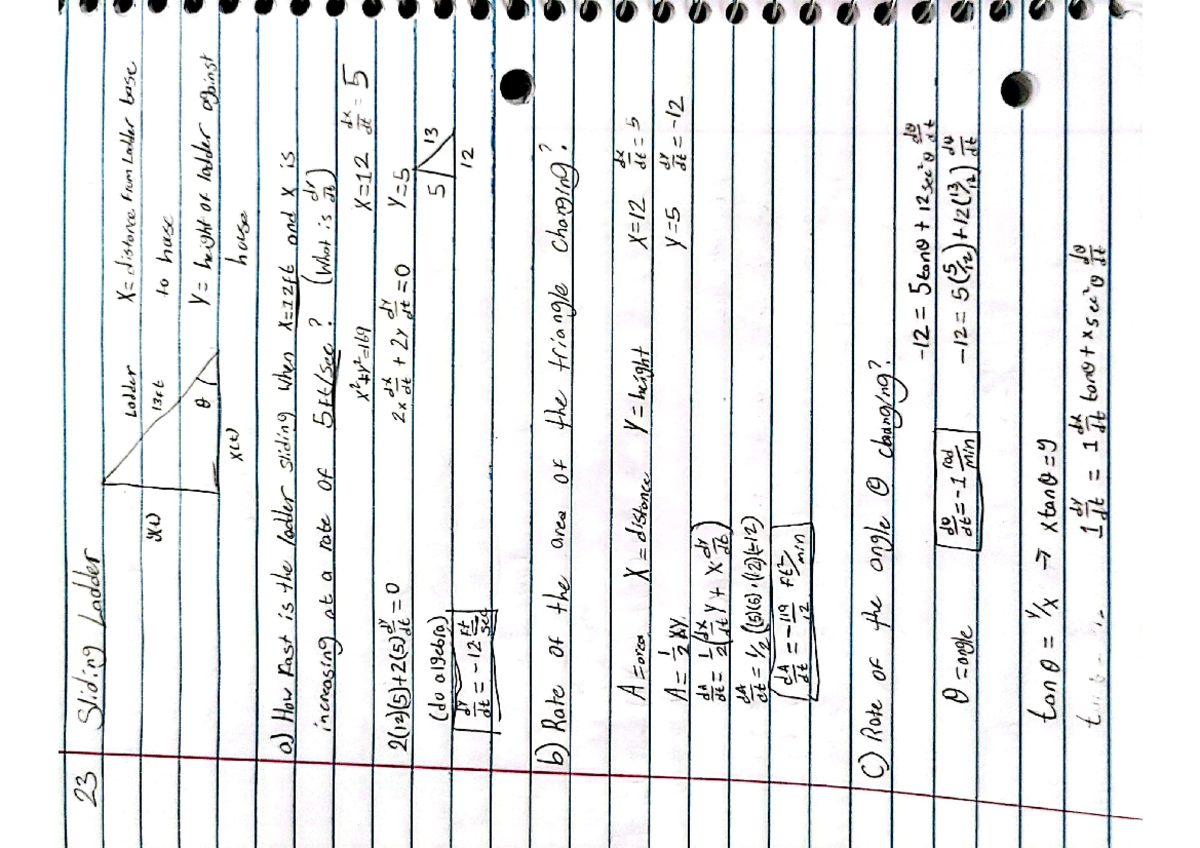 23 Sliding Ladder
Ladder
13ft
y(t)
θ
x(t)
X = distance from Ladder base
to hause
Y = height of ladder against
house
a) How fast is the ladder sliding when x=12ft and x is
increasing at a rate of 5ft/sec? (What is dy/dt)
x²+y²=169
x=12 dx/dt = 5
2x dx/dt + 2y dy/dt = 0
y=5
2(12)(5)+2(5) dy/dt = 0
(do algebra)
dy/dt = -12 ft/sec
5
13
12
b) Rate of the area of the triangle changing?
A = area X = distance Y = height
x=12 dx/dt = 5
y=5 dy/dt = -12
A = 1/2 xy
dA/dt = 1/2(dx/dt y + x dy/dt)
dA/dt = 1/2((5)(5)+(12)(-12)
dA/dt = -119/12 ft²/min
c) Rate of the angle θ changing?
-12 = 5tanθ + 12sec²θ dθ/dt
θ = angle
dθ/dt = -1 rad/min
-12 = 5(5/12)+12(13/12) dθ/dt
tanθ = y/x → xtanθ=y
1 dy/dt = 1 dx/dt tanθ + x sec²θ dθ/dt